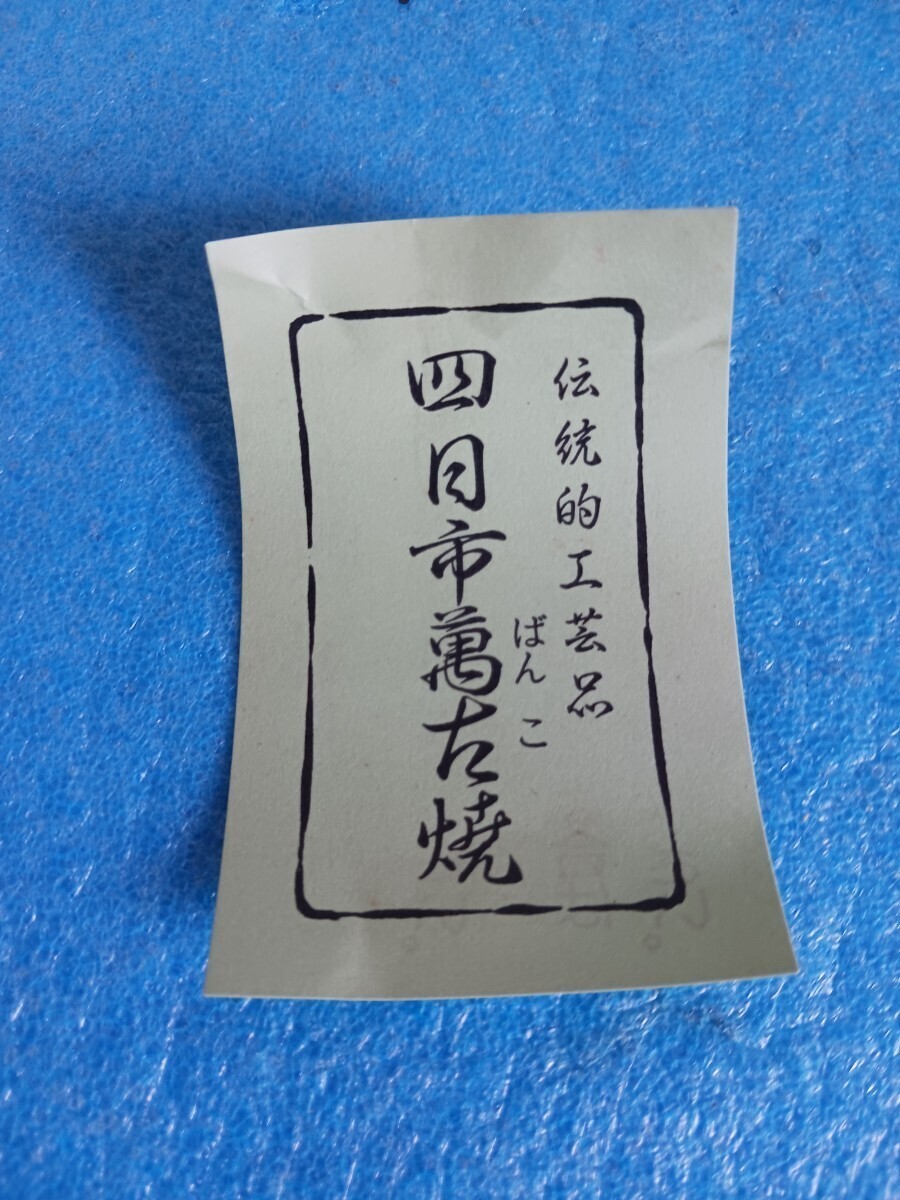 伝統的工芸品
ばんこ
四日市萬古焼